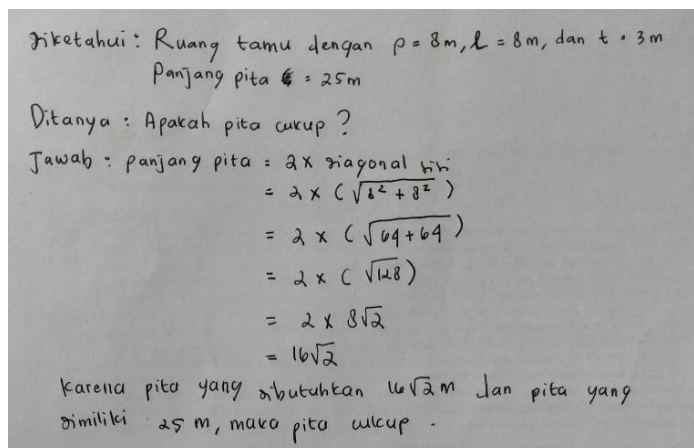 Diketahui : Ruang tamu dengan p = 8 m, l = 8 m, dan t = 3 m
Panjang pita = 25 m
Ditanya : Apakah pita cukup ?
Jawab : panjang pita = 2 x diagonal sisi
= 2 x ( √8² + 8² )
= 2 x ( √64 + 64 )
= 2 x ( √128 )
= 2 x 8√2
= 16√2
Karena pita yang dibutuhkan 16√2 m dan pita yang
dimiliki 25 m, maka pita cukup .